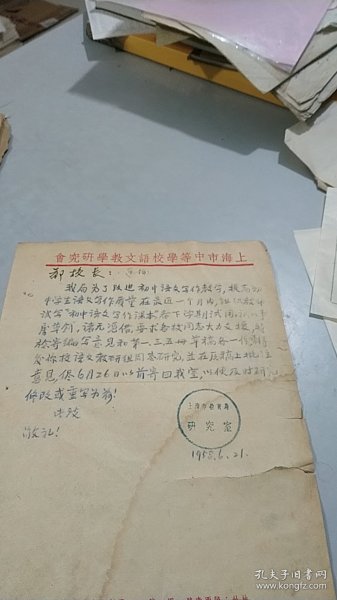 會究研學教文語校學等中市海上
郭校长：
我局为了改进初中语文写作教学，提高初
中学生语文写作质量 在最近一个月内组织教师
试写"初中语文写作课本"备下学期试用。
席草创，诸无准备，要求各校同志大力支援，
检寄编写意见和第一、二、三册草稿各一份，请
发你校语文教研组同志研究，并在原稿上批注
意见，依6月26日以前寄回我室，以便及时研究
修改或重写为荷！
此致
敬礼！
上海市教育局
研究室
1958.6.21.
孔夫子旧书网
www.kongfz.com